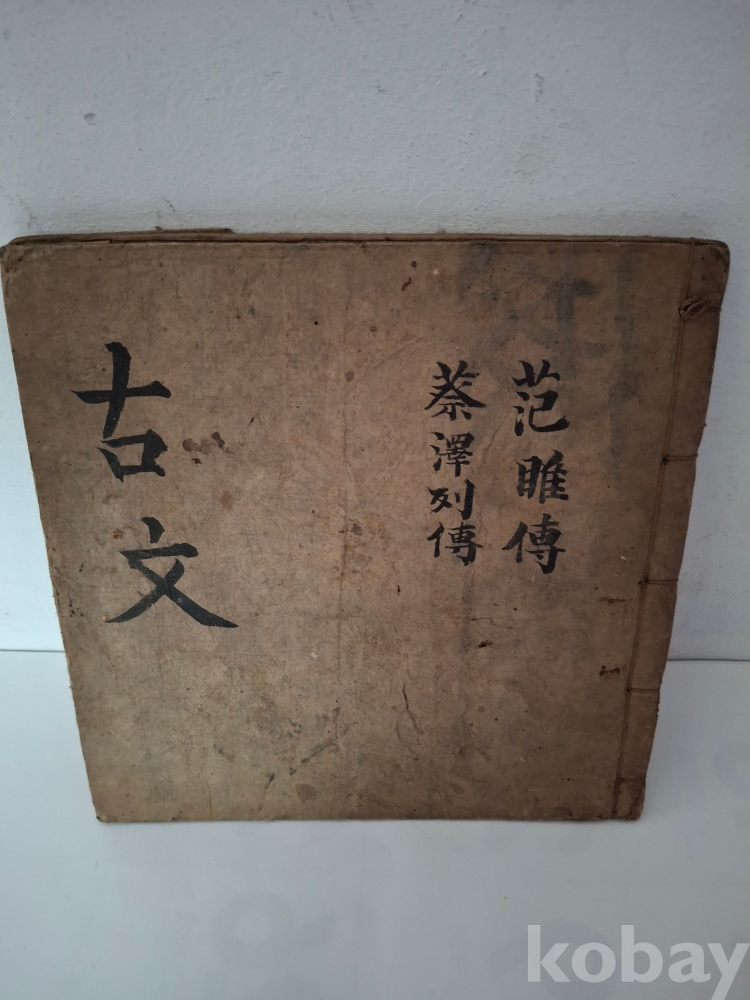 范睢傳
蔡澤列傳
古文
kobay